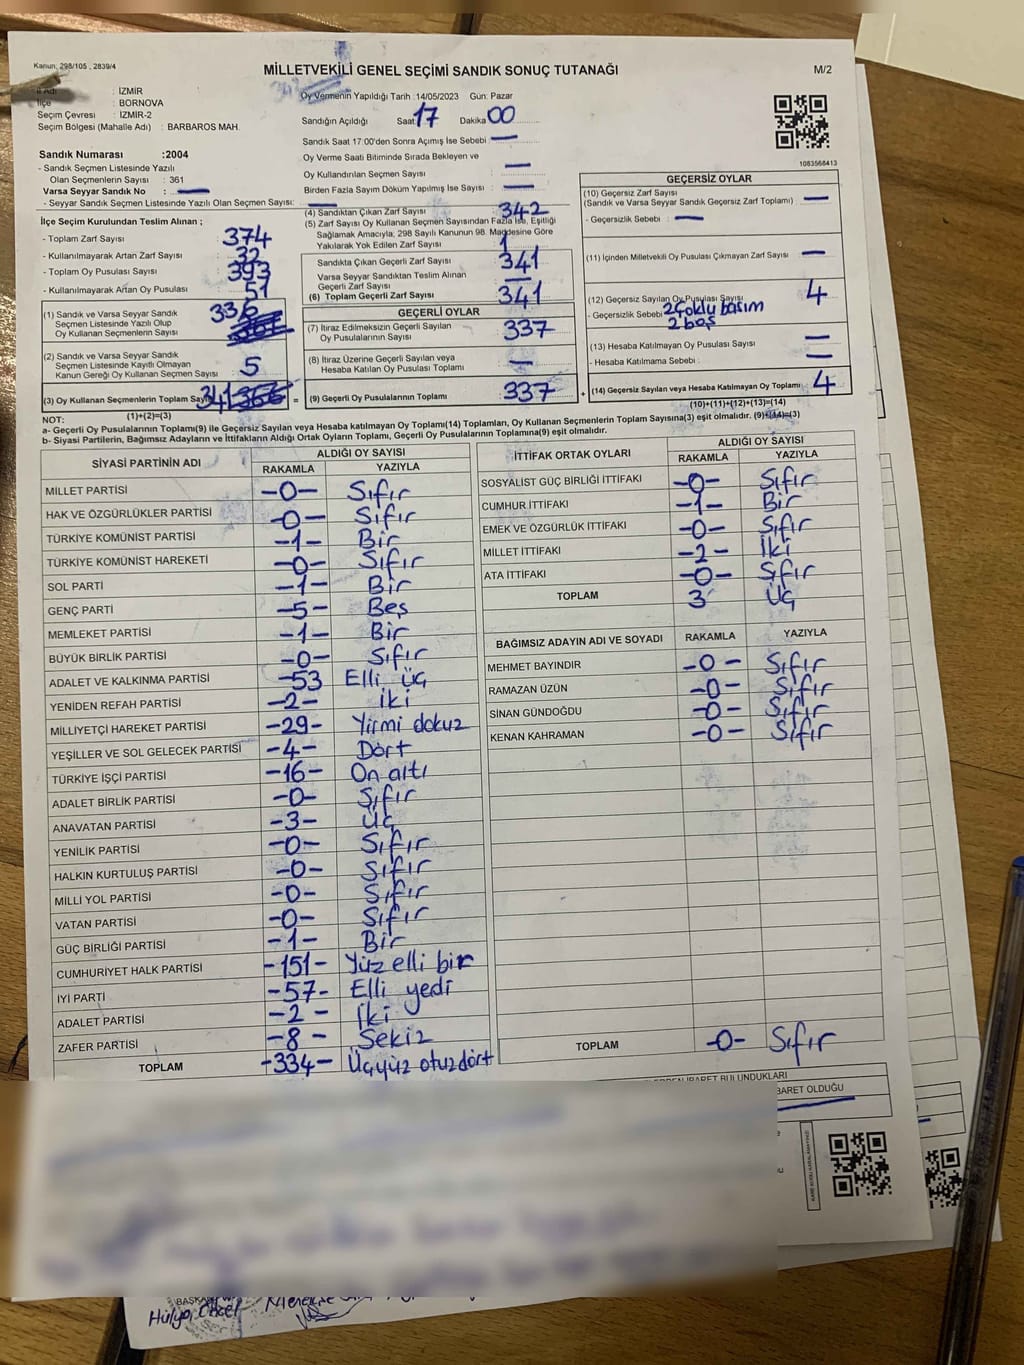 Kanun, 298/105 , 2839/4
MİLLETVEKİLİ GENEL SEÇİMİ SANDIK SONUÇ TUTANAĞI
M/2
İl Adı : İZMİR
İlçe : BORNOVA
Seçim Çevresi : İZMİR-2
Seçim Bölgesi (Mahalle Adı) : BARBAROS MAH.
Oy Vermenin Yapıldığı Tarih :14/05/2023 Gün: Pazar
Sandığın Açıldığı Saat 17 Dakika 00
Sandık Saat 17:00'den Sonra Açımış İse Sebebi : —
Oy Verme Saati Bitiminde Sırada Bekleyen ve
Oy Kullandırılan Seçmen Sayısı : —
Birden Fazla Sayım Döküm Yapılmış İse Sayısı : —
1083568413
Sandık Numarası :2004
- Sandık Seçmen Listesinde Yazılı
Olan Seçmenlerin Sayısı : 361
Varsa Seyyar Sandık No : —
- Seyyar Sandık Seçmen Listesinde Yazılı Olan Seçmen Sayısı: —
İlçe Seçim Kurulundan Teslim Alınan ;
- Toplam Zarf Sayısı : 374
- Kullanılmayarak Artan Zarf Sayısı : 32
- Toplam Oy Pusulası Sayısı : 393
- Kullanılmayarak Artan Oy Pusulası : 51
(1) Sandık ve Varsa Seyyar Sandık
Seçmen Listesinde Yazılı Olup
Oy Kullanan Seçmenlerin Sayısı
(2) Sandık ve Varsa Seyyar Sandık
Seçmen Listesinde Kayıtlı Olmayan
Kanun Gereği Oy Kullanan Seçmen Sayısı 5
(3) Oy Kullanan Seçmenlerin Toplam Sayısı 341
(1)+(2)=(3)
(4) Sandıktan Çıkan Zarf Sayısı 342
(5) Zarf Sayısı Oy Kullanan Seçmen Sayısından Fazla İse, Eşitliği
Sağlamak Amacıyla, 298 Sayılı Kanunun 98. Maddesine Göre
Yakılarak Yok Edilen Zarf Sayısı 1
Sandıkta Çıkan Geçerli Zarf Sayısı 341
Varsa Seyyar Sandıktan Teslim Alınan
Geçerli Zarf Sayısı —
(6) Toplam Geçerli Zarf Sayısı 341
GEÇERLİ OYLAR
(7) İtiraz Edilmeksizin Geçerli Sayılan
Oy Pusulalarının Sayısı 337
(8) İtiraz Üzerine Geçerli Sayılan veya
Hesaba Katılan Oy Pusulası Toplamı —
= (9) Geçerli Oy Pusulalarının Toplamı 337
GEÇERSİZ OYLAR
(10) Geçersiz Zarf Sayısı
(Sandık ve Varsa Seyyar Sandık Geçersiz Zarf Toplamı) —
- Geçersizlik Sebebi : —
(11) İçinden Milletvekili Oy Pusulası Çıkmayan Zarf Sayısı —
(12) Geçersiz Sayılan Oy Pusulası Sayısı 4
- Geçersizlik Sebebi : 2 Çoklu basım
2 boş
(13) Hesaba Katılmayan Oy Pusulası Sayısı —
- Hesaba Katılmama Sebebi : —
+ (14) Geçersiz Sayılan veya Hesaba Katılmayan Oy Toplamı 4
(10)+(11)+(12)+(13)=(14)
NOT:
a- Geçerli Oy Pusulalarının Toplamı(9) ile Geçersiz Sayılan veya Hesaba katılmayan Oy Toplamı(14) Toplamları, Oy Kullanan Seçmenlerin Toplam Sayısına(3) eşit olmalıdır. (9)+(14)=(3)
b- Siyasi Partilerin, Bağımsız Adayların ve İttifakların Aldığı Ortak Oyların Toplamı, Geçerli Oy Pusulalarının Toplamına(9) eşit olmalıdır.
SİYASİ PARTİNİN ADI ALDIĞI OY SAYISI
RAKAMLA YAZIYLA
MİLLET PARTİSİ -0- Sıfır
HAK VE ÖZGÜRLÜKLER PARTİSİ -0- Sıfır
TÜRKİYE KOMÜNİST PARTİSİ -1- Bir
TÜRKİYE KOMÜNİST HAREKETİ -0- Sıfır
SOL PARTİ -1- Bir
GENÇ PARTİ -5- Beş
MEMLEKET PARTİSİ -1- Bir
BÜYÜK BİRLİK PARTİSİ -0- Sıfır
ADALET VE KALKINMA PARTİSİ -53 Elli üç
YENİDEN REFAH PARTİSİ -2- İki
MİLLİYETÇİ HAREKET PARTİSİ -29- Yirmi dokuz
YEŞİLLER VE SOL GELECEK PARTİSİ -4- Dört
TÜRKİYE İŞÇİ PARTİSİ -16- On altı
ADALET BİRLİK PARTİSİ -0- Sıfır
ANAVATAN PARTİSİ -3- Üç
YENİLİK PARTİSİ -0- Sıfır
HALKIN KURTULUŞ PARTİSİ -0- Sıfır
MİLLİ YOL PARTİSİ -0- Sıfır
VATAN PARTİSİ -0- Sıfır
GÜÇ BİRLİĞİ PARTİSİ -1- Bir
CUMHURİYET HALK PARTİSİ -151- Yüz elli bir
İYİ PARTİ -57- Elli yedi
ADALET PARTİSİ -2- İki
ZAFER PARTİSİ -8- Sekiz
TOPLAM -334- Üçyüz otuzdört
İTTİFAK ORTAK OYLARI ALDIĞI OY SAYISI
RAKAMLA YAZIYLA
SOSYALİST GÜÇ BİRLİĞİ İTTİFAKI -0- Sıfır
CUMHUR İTTİFAKI -1- Bir
EMEK VE ÖZGÜRLÜK İTTİFAKI -0- Sıfır
MİLLET İTTİFAKI -2- İki
ATA İTTİFAKI -0- Sıfır
TOPLAM 3 Üç
BAĞIMSIZ ADAYIN ADI VE SOYADI RAKAMLA YAZIYLA
MEHMET BAYINDIR -0- Sıfır
RAMAZAN ÜZÜN -0- Sıfır
SİNAN GÜNDOĞDU -0- Sıfır
KENAN KAHRAMAN -0- Sıfır
TOPLAM -0- Sıfır
BULUNDUKLARI
BARET OLDUĞU
Hülya